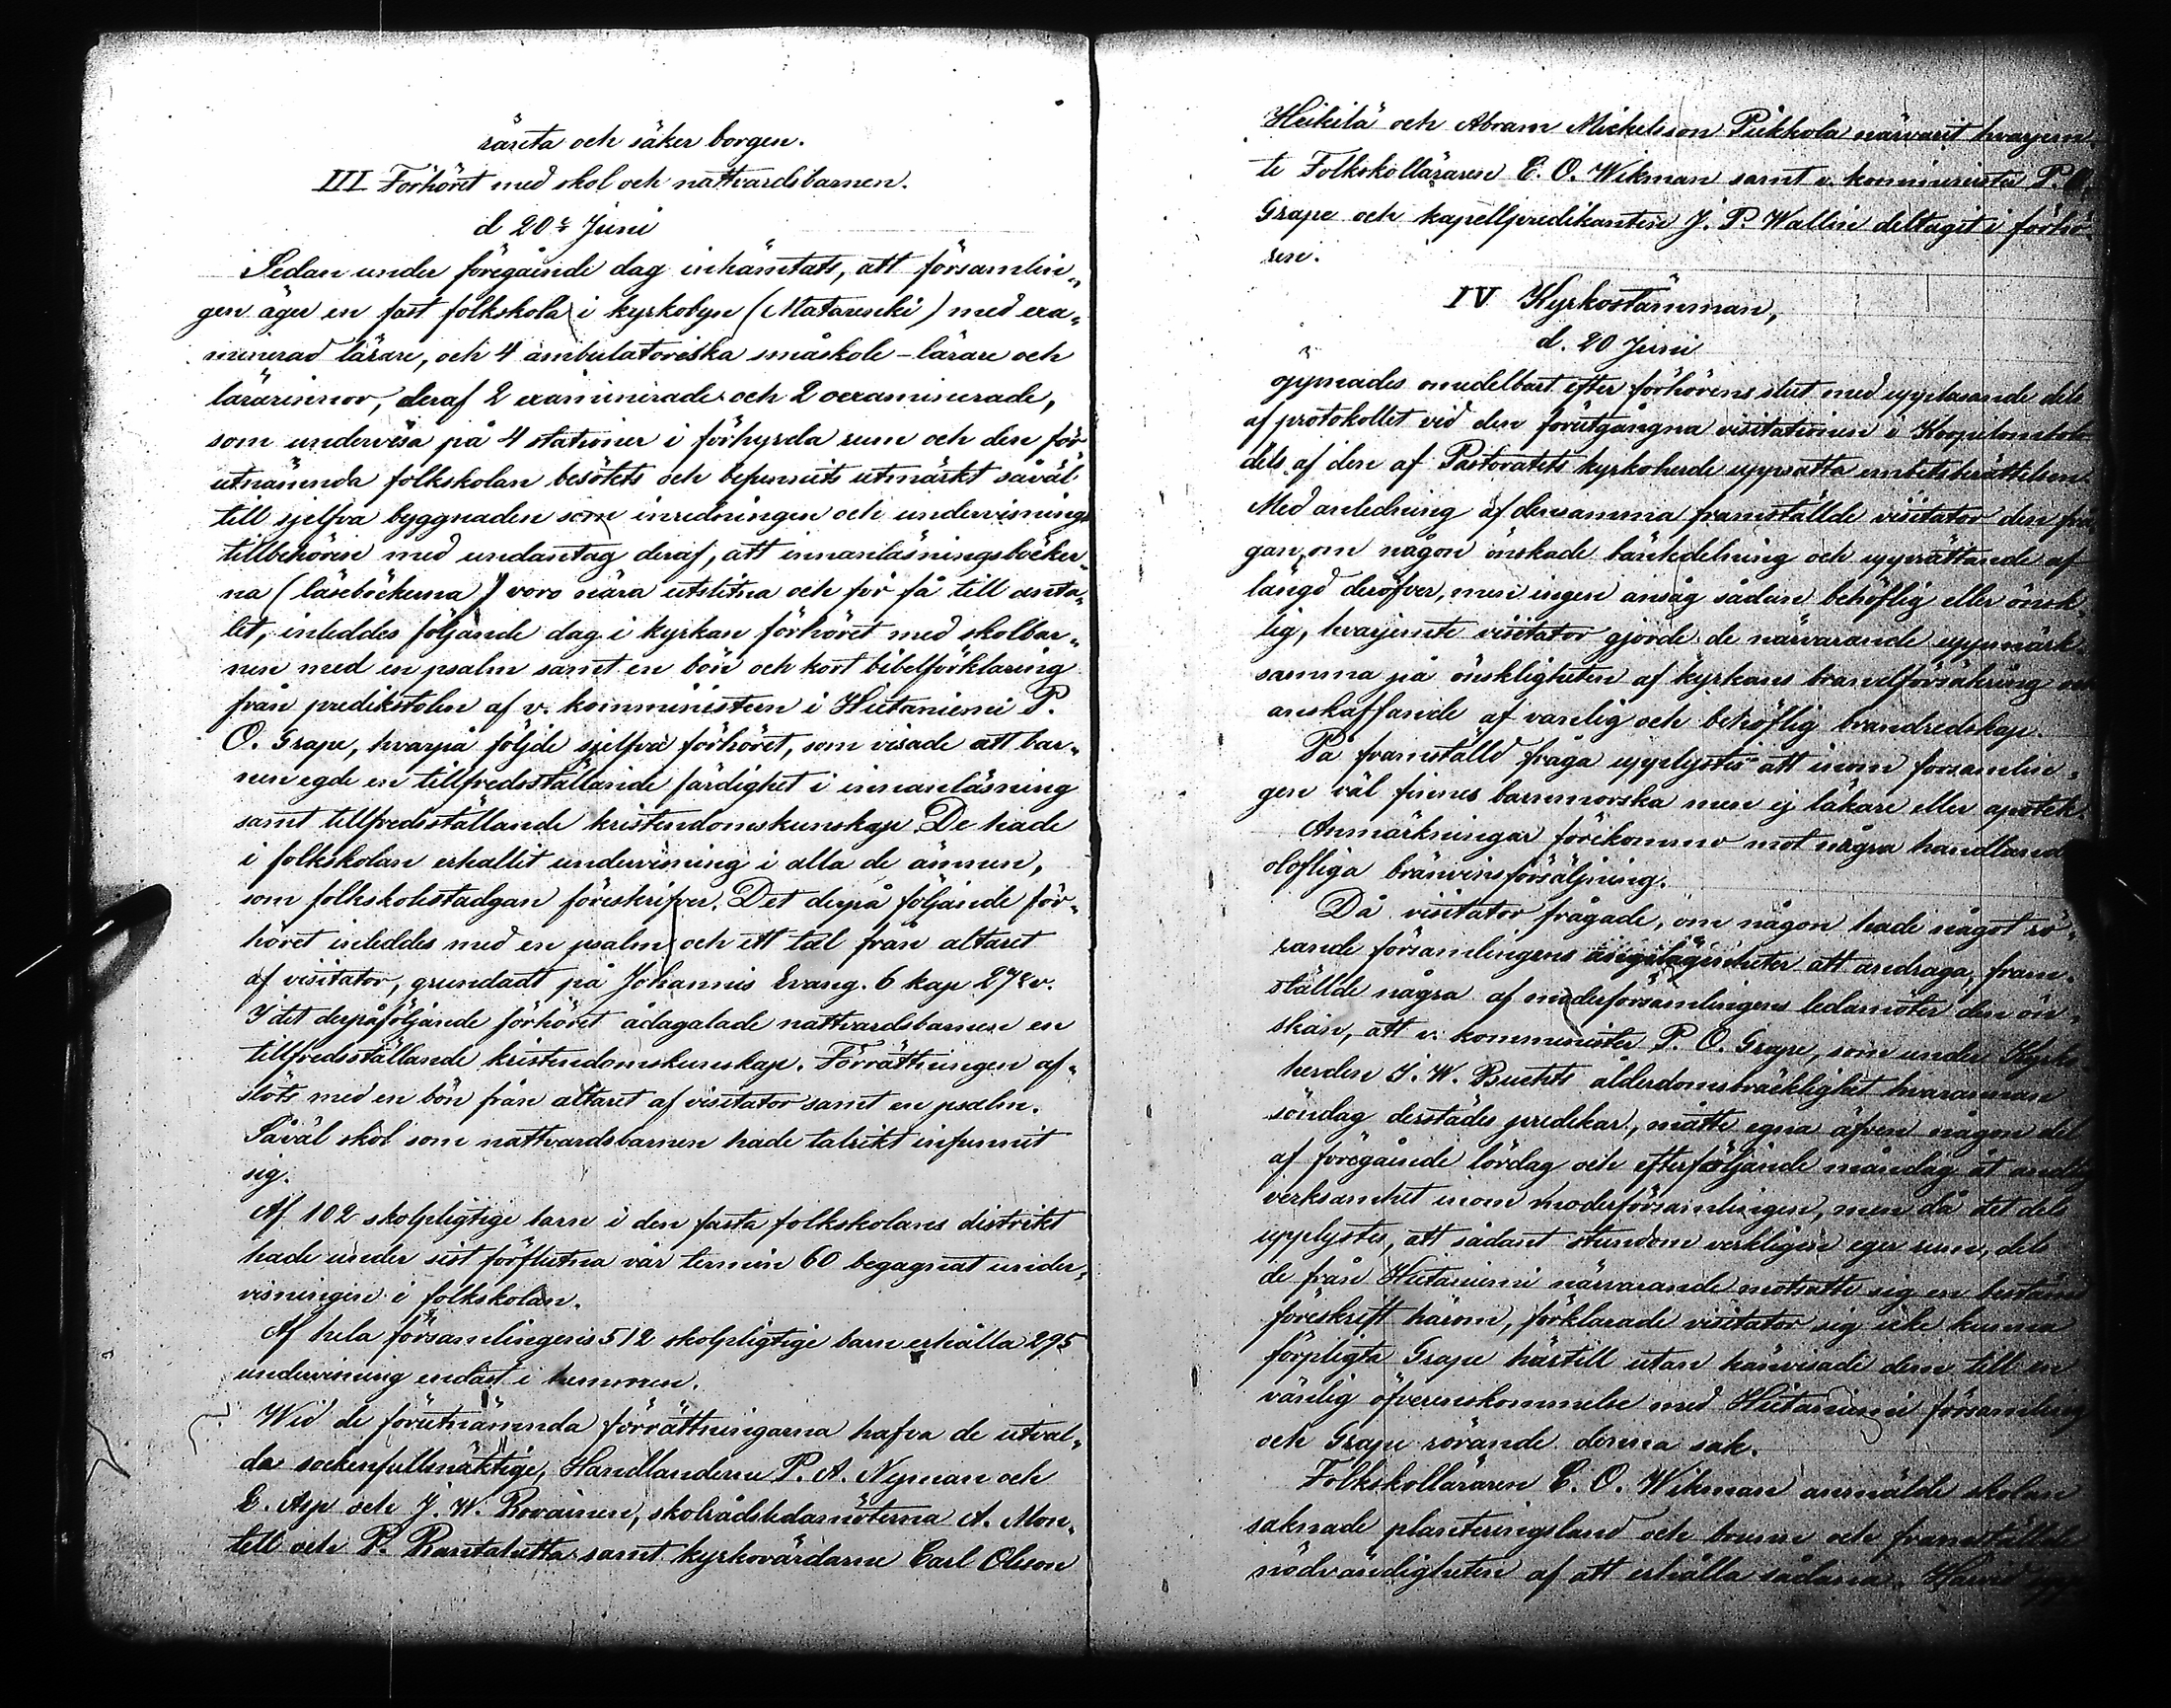 ränta och säker borgen.
III Förhöret med skol och nattvardsbarnen.
d 20:e Juni
Sedan under föregående dag inhämtats, att församlin„
gen äger en fast folkskola i kyrkobyn (Matarenki) med exa„
minerad lärare, och 4 ambulatoriska småskole-lärare och
lärarinnor, deraf 2 examinerade och 2 oexaminerade,
som undervisa på 4 stationer i förhyrda rum och den för
utnämnda folkskolan besökts och befunnits utmärkt såväl
till sjelfva byggnaden som inredningen och undervisnings
tillbehören med undantag deraf, att innanläsningsböcker„
na (läseböckerna) voro nära utslitna och för få till anta„
let, inleddes följande dag i kyrkan förhöret med skolbar„
nen med en psalm samt en bön och kort bibelförklaring
från predikstolen af v. kommisterien i Hietaniemi P.
O. Grape, hvarpå följde sjelfva förhöret, som visade att bar„
nen egde en tillfredsställande färdighet i innanläsning
samt tillfredsställande kristendomskunskap. De hade
i folkskolan erhallit undervisning i alla de ämnen,
som folkskolestadgan föreskrifver. Det derpå följande för„
höret inleddes med en psalm och ett tal från altaret
af visitator, grundadt på Johannis Evang. 6 kap 27 v.
I det derpåföljande förhöret ådagalade nattvardsbarnen en
tillfredsställande kristendomskunskap. Förrättningen af„
slöts med en bön från altaret af visitator samt en psalm.
Såväl skol som nattvardsbarnen hade talrikt infunnit
sig.
Af 102 skolpligtige barn i den fasta folkskolans distrikt
hade under sist förflutna vår termin 60 begagnat under„
visningen i folkskolan.
Af hela församlingens 512 skolpligtige barn erhålla 295
undervisning endast i hemmen.
Wid de förutnämnda förrättningarna hafva de utval„
da sockenfullmäktige, Handlanderne P. A. Nyman och
E. Asp och J. W. Rovainen, skolrådsledamöterna A. Mon„
tell och P. Rantatalutta samt kyrkovärdarne Carl Olsson
Heikilä och Abram Mickelsson Piekkola närvarit hvarjem„
te Folkskolläraren C. O. Wikman samt v. kommister P. O.
Grape och kapellpredikanten J. P. Wallin deltagit i förhö„
ren.
IV Kyrkostämman,
d. 20 Juni
öppnades omedelbart efter förhörens slut med uppläsande dels
af protokollet vid den förutgångna visitationen i Korpilombolo
dels af den af Pastoratets kyrkoherde uppsatta embetsberättelsen.
Med anledning af densamma framställde visitator den frå
gan, om någon önskade bänkdelning och upprättande af
längd deröfver, men ingen ansåg sådan behöflig eller önsk
lig, hvarjemte visitator gjorde de närvarande uppmärk„
samma på önskligheten af kyrkans brandförsäkring och
anskaffande af vanlig och behöflig brandredskap.
På framställd fråga upplystes att inom församlin„
gen väl finnes barnmorska men ej läkare eller apotek.
Anmärkningar förekommo mot några handlandes
olofliga bränvinsförsäljning.
Då visitator frågade, om någon hade något rö„
rande församlingens angelägenheter att andraga, fram„
ställde några af moderförsamlingens ledamöter den ön„
skan, att v. kommister P. O. Grape, som under Kyrko„
herden J. W. Buchts ålderdomsbräcklighet hvarannan
söndag derstädes predikar, måtte egna äfven någon del
af föregående lördag och efterföljande måndag åt andlig
verksamhet inom moderförsamlingen, men då det dels
upplystes, att sådant stundom verkligen eger rum, dels
de från Hietaniemi närvarande motsatte sig en bestämd
föreskrift härom, förklarade visitator sig icke kunna
förpligta Grape härtill utan hänvisade dem till en
vänlig öfverenskommelse med Hietaniemi församling
och Grape rörande denna sak.
Folkskolläraren C. O. Wikman anmälde skolan
saknade planteringsland och brunn och framställde
nödvändigheten af att erhålla sådana. Härvid